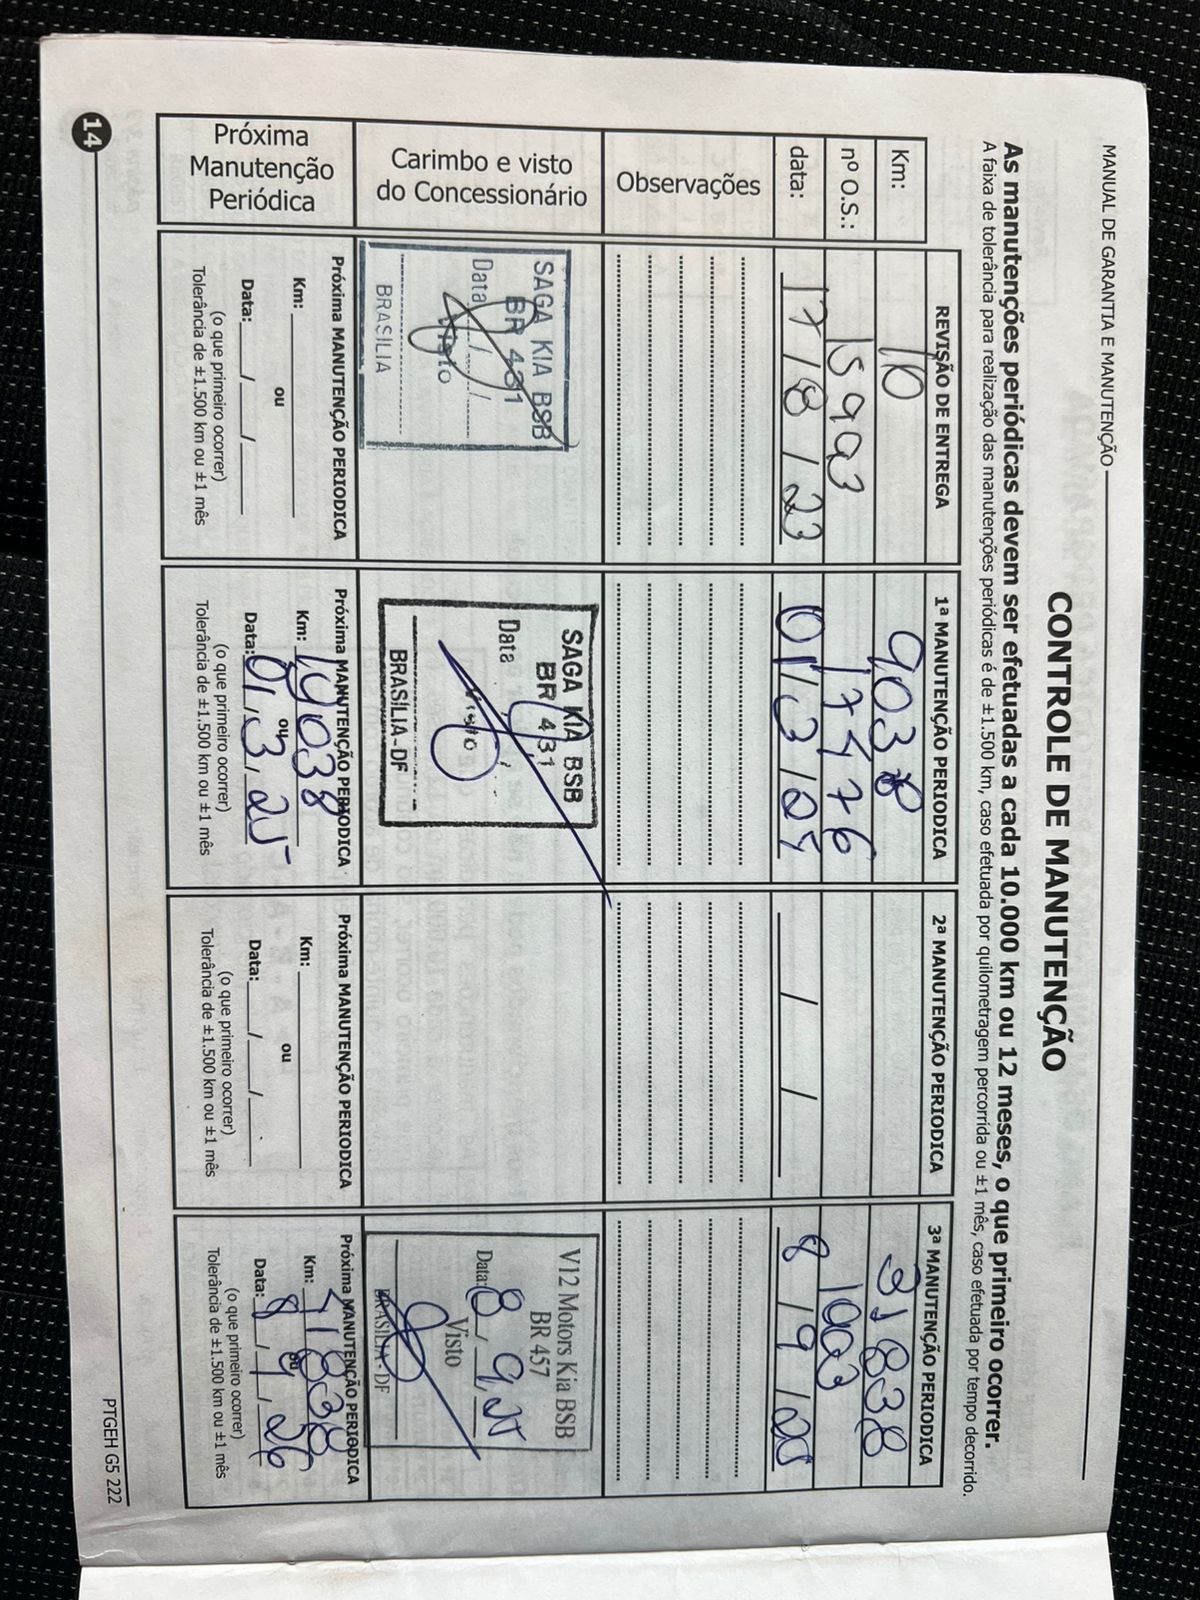 MANUAL DE GARANTIA E MANUTENÇÃO
CONTROLE DE MANUTENÇÃO
As manutenções periódicas devem ser efetuadas a cada 10.000 km ou 12 meses, o que primeiro ocorrer.
A faixa de tolerância para realização das manutenções periódicas é de ±1.500 km, caso efetuada por quilometragem percorrida ou ±1 mês, caso efetuada por tempo decorrido.
REVISÃO DE ENTREGA
1ª MANUTENÇÃO PERIODICA
2ª MANUTENÇÃO PERIODICA
3ª MANUTENÇÃO PERIODICA
Km: 10 9038 31838
nº O.S.: 15993 17476 1993
data: 17/8/23 01/3/24 / / 8/9/25
Observações
Carimbo e visto
do Concessionário
SAGA KIA BSB
BR 431
Data / /
Visto
BRASILIA
SAGA KIA BSB
BR 431
Data
Visto
BRASÍLIA-DF
V12 Motors Kia BSB
BR 457
Data: 8/9/25
Visto
BRASÍLIA-DF
Próxima
Manutenção
Periódica
Próxima MANUTENÇÃO PERIODICA
Km:
ou
Data: / /
(o que primeiro ocorrer)
Tolerância de ±1.500 km ou ±1 mês
Próxima MANUTENÇÃO PERIODICA
Km: 19038
ou
Data: 01/3/25
(o que primeiro ocorrer)
Tolerância de ±1.500 km ou ±1 mês
Próxima MANUTENÇÃO PERIODICA
Km:
ou
Data: / /
(o que primeiro ocorrer)
Tolerância de ±1.500 km ou ±1 mês
Próxima MANUTENÇÃO PERIODICA
Km: 41838
ou
Data: 8/9/26
(o que primeiro ocorrer)
Tolerância de ±1.500 km ou ±1 mês
14
PTGEH G5 222